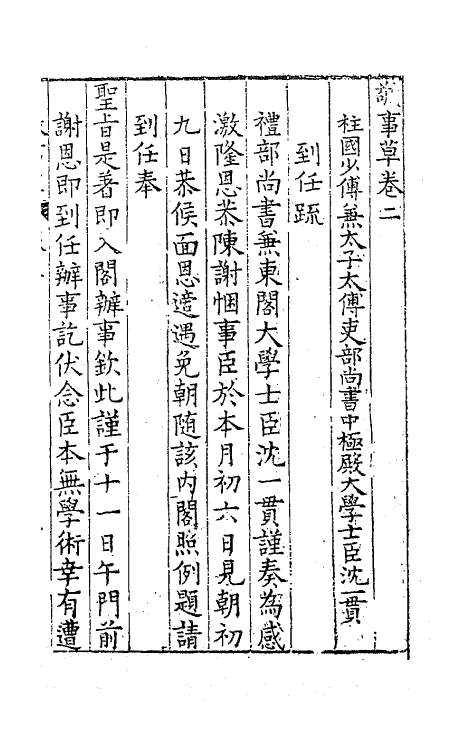 敬事草卷二
柱國少傅兼太子太傅吏部尚書中極殿大學士臣沈一貫
到任疏
禮部尚書兼東閣大學士臣沈一貫謹奏為感
激隆恩恭陳謝悃事臣於本月初六日見朝初
九日恭候面恩遭遇免朝隨該內閣照例題請
到任奉
聖旨是著即入閣辦事欽此謹于十一日午門前
謝恩即到任辦事訖伏念臣本無學術幸有遭